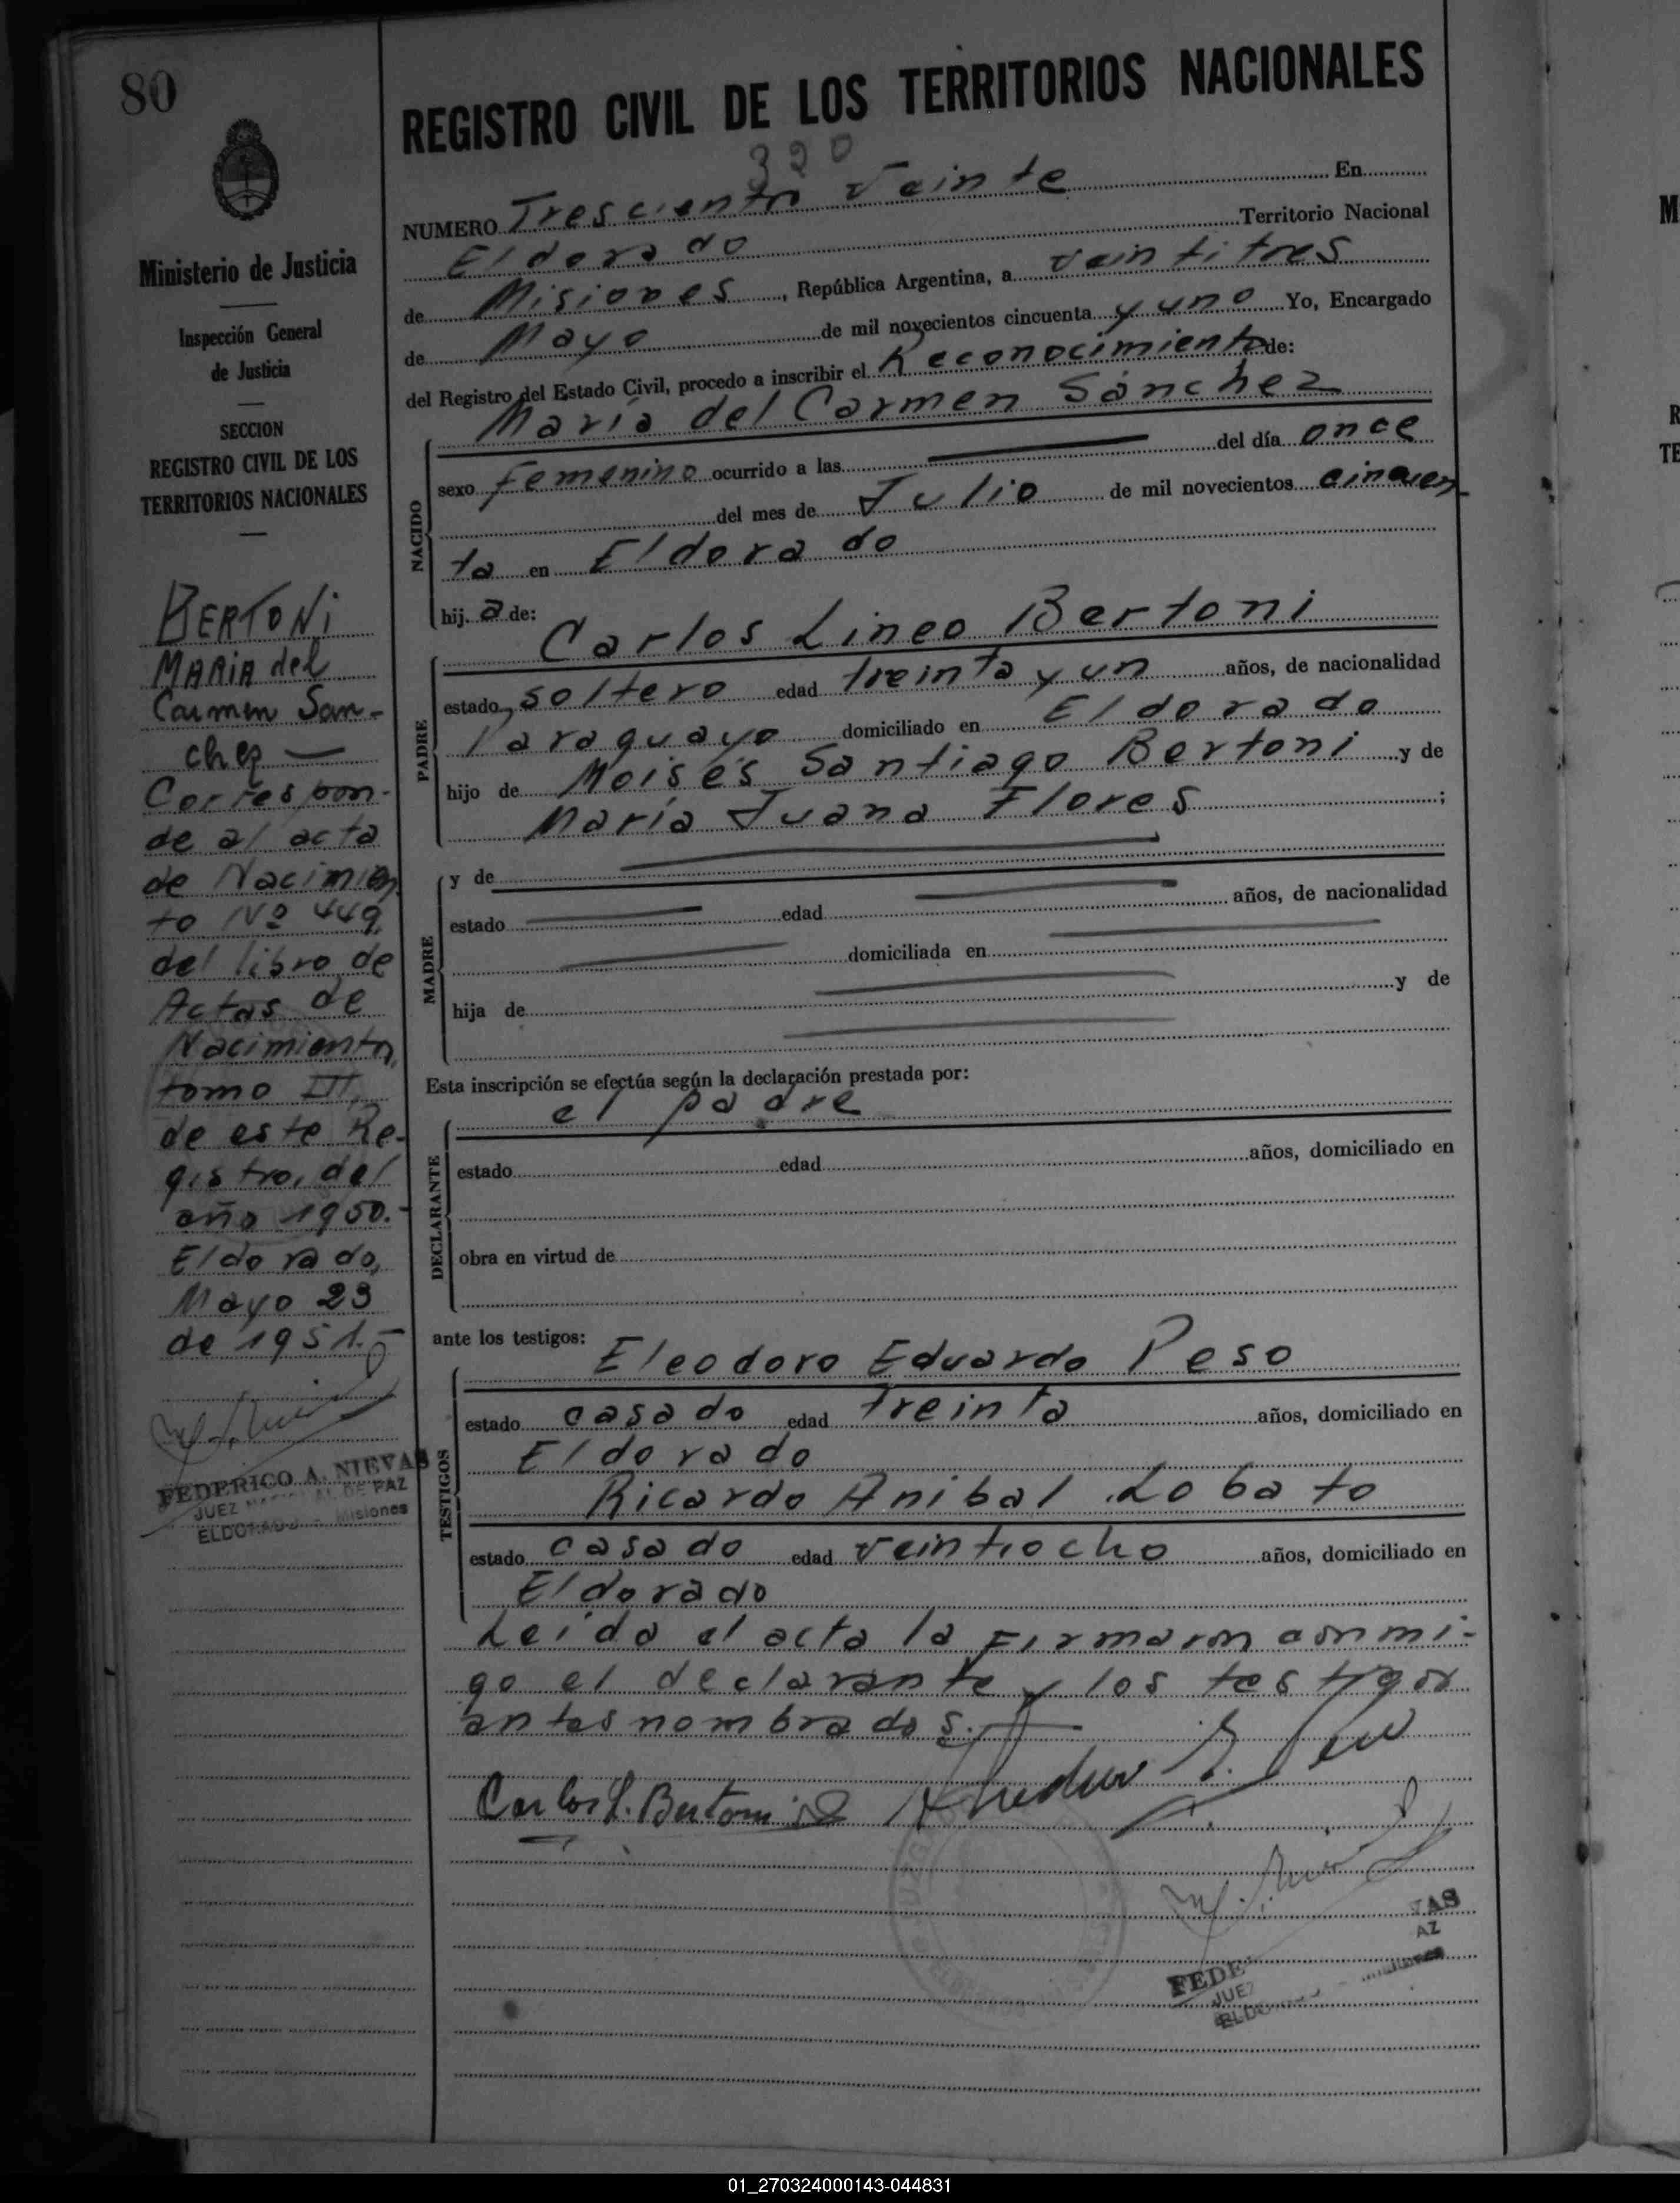 80
Ministerio de Justicia
Inspección General
de Justicia
SECCION
REGISTRO CIVIL DE LOS
TERRITORIOS NACIONALES
BERTONI
MARIA del
Carmen San-
chez
Correspon-
de al acta
de Nacimien
to Nº 449,
del libro de
Actas de
Nacimiento,
tomo III,
de este Re-
gistro, del
año 1950.-
Eldorado,
Mayo 23
de 1951.-
FEDERICO A. NIEVAS
JUEZ DE PAZ
ELDORADO - Misiones
REGISTRO CIVIL DE LOS TERRITORIOS NACIONALES
320
NUMERO Tresciento Veinte En
Eldorado Territorio Nacional
de Misiones, República Argentina, a veintitres
de Mayo de mil novecientos cincuenta y uno Yo, Encargado
del Registro del Estado Civil, procedo a inscribir el Reconocimiento de:
María del Carmen Sánchez
NACIDO
sexo femenino ocurrido a las del día once
del mes de Julio de mil novecientos cincuen-
ta en Eldorado
hij a de:
PADRE
Carlos Lineo Bertoni
estado soltero edad treinta y un años, de nacionalidad
Paraguayo domiciliado en Eldorado
hijo de Moisés Santiago Bertoni y de
María Juana Flores ;
MADRE
y de
estado edad años, de nacionalidad
domiciliada en
hija de y de
Esta inscripción se efectúa según la declaración prestada por:
el padre
DECLARANTE
estado edad años, domiciliado en
obra en virtud de
ante los testigos:
TESTIGOS
Eleodoro Eduardo Peso
estado casado edad treinta años, domiciliado en
Eldorado
Ricardo Anibal Lobato
estado casado edad veintiocho años, domiciliado en
Eldorado
Leída el acta la firmaron conmi-
go el declarante y los testigos
antes nombrados.-
Carlos L. Bertoni
FEDE VAS
JUEZ AZ
ELDO
01_270324000143-044831